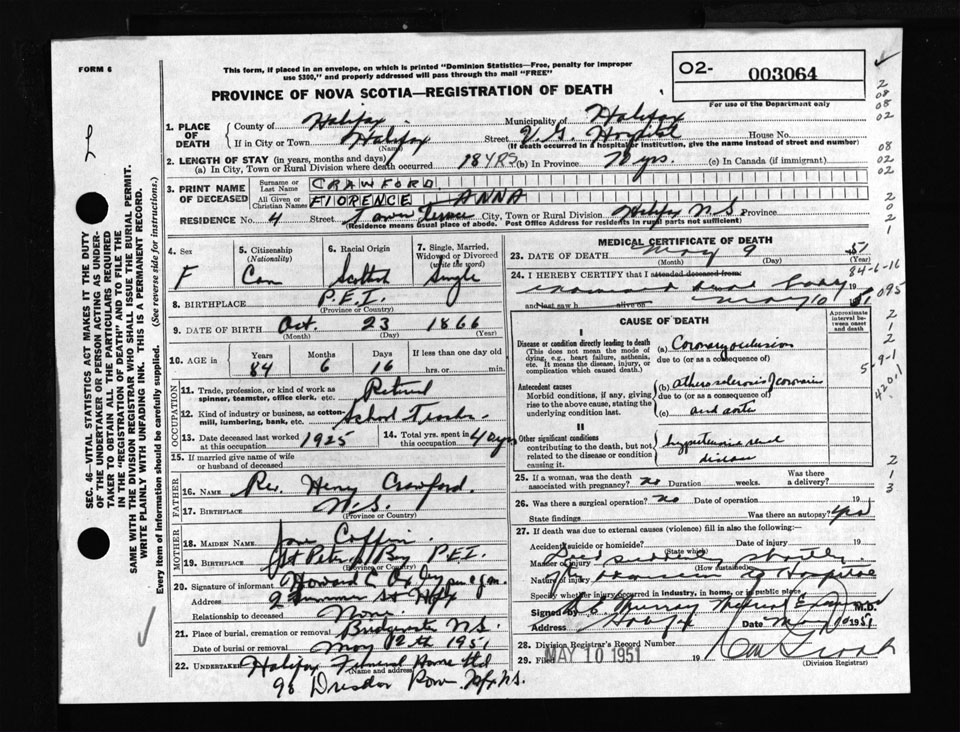 FORM 6
This form, if placed in an envelope, on which is printed "Dominion Statistics—Free, penalty for improper
use $300," and properly addressed will pass through the mail "FREE"
O2- 003064
For use of the Department only
PROVINCE OF NOVA SCOTIA—REGISTRATION OF DEATH
1. PLACE OF DEATH
County of Halifax Municipality of Halifax
If in City or Town Halifax (Name) Street V.G. Hospital House No.
(If death occurred in a hospital or institution, give the name instead of street and number)
2. LENGTH OF STAY (in years, months and days)
(a) In City, Town or Rural Division where death occurred 18 YRS (b) In Province 72 yrs. (c) In Canada (if immigrant)
3. PRINT NAME OF DECEASED
Surname or Last Name CRAWFORD
All Given or Christian Names FLORENCE ANNA
RESIDENCE No. 4 Street Tower Terrace City, Town or Rural Division Halifax N.S. Province
(Residence means usual place of abode. Post Office Address for residents in rural parts not sufficient)
4. Sex F
5. Citizenship (Nationality) Can
6. Racial Origin Scottish
7. Single, Married, Widowed or Divorced (write the word) Single
8. BIRTHPLACE P.E.I. (Province or Country)
9. DATE OF BIRTH Oct. 23 1866
(Month) (Day) (Year)
10. AGE in Years 84 Months 6 Days 16 If less than one day old hrs. or min.
OCCUPATION
11. Trade, profession, or kind of work as spinner, teamster, office clerk, etc. Retired
12. Kind of industry or business, as cotton-mill, lumbering, bank, etc. School Teacher
13. Date deceased last worked at this occupation 1925
14. Total yrs. spent in this occupation 40 yrs
15. If married give name of wife or husband of deceased
FATHER
16. NAME Rev. Henry Crawford
17. BIRTHPLACE N.S. (Province or Country)
MOTHER
18. MAIDEN NAME Jane Coffin
19. BIRTHPLACE St Peters Bay P.E.I. (Province or Country)
20. Signature of informant Howard C
Address 2 Summer St Hfx
Relationship to deceased None
21. Place of burial, cremation or removal Bridgewater N.S.
Date of burial or removal May 12th 1951
22. UNDERTAKER Halifax Funeral Home Ltd
(Name and address)
90 Dresden Row Hfx N.S.
MEDICAL CERTIFICATE OF DEATH
23. DATE OF DEATH May 9 51
(Month) (Day) (Year)
84-6-16
24. I HEREBY CERTIFY that I attended deceased from:
examined dead body
and last saw h alive on May 10 51
CAUSE OF DEATH
Approximate interval between onset and death
I
Disease or condition directly leading to death
(This does not mean the mode of dying, e.g., heart failure, asthenia, etc. It means the disease, injury, or complication which caused death.)
(a) Coronary occlusion
due to (or as a consequence of)
Antecedent causes
Morbid conditions, if any, giving rise to the above cause, stating the underlying condition last.
(b) atherosclerosis of coronaries
due to (or as a consequence of)
(c) and aorta
II
Other significant conditions
contributing to the death, but not related to the disease or condition causing it.
hypertensive renal
disease
25. If a woman, was the death associated with pregnancy? no Duration weeks. Was there a delivery?
26. Was there a surgical operation? no Date of operation 19
State findings Was there an autopsy? Yes
27. If death was due to external causes (violence) fill in also the following:—
Accident, suicide or homicide? (State which) Date of injury 19
Manner of injury Died suddenly shortly (How sustained)
Nature of injury Hospital
Specify whether injury occurred in industry, in home, or in public place
Signed by Murray Medical M.D.
Address Halifax Date May 10 1951
28. Division Registrar's Record Number
29. Filed MAY 10 1951 19
(Division Registrar)
SEC. 46—VITAL STATISTICS ACT MAKES IT THE DUTY
OF THE UNDERTAKER OR PERSON ACTING AS UNDER-
TAKER TO OBTAIN ALL THE PARTICULARS REQUIRED
IN THE "REGISTRATION OF DEATH" AND TO FILE THE
SAME WITH THE DIVISION REGISTRAR WHO SHALL ISSUE THE BURIAL PERMIT.
WRITE PLAINLY WITH UNFADING INK. THIS IS A PERMANENT RECORD.
Every item of information should be carefully supplied. (See reverse side for instructions.)
2
08
08
02
08
02
02
2
0
2
1
095
2
1
2
5-9-1
420.1
2
1
3